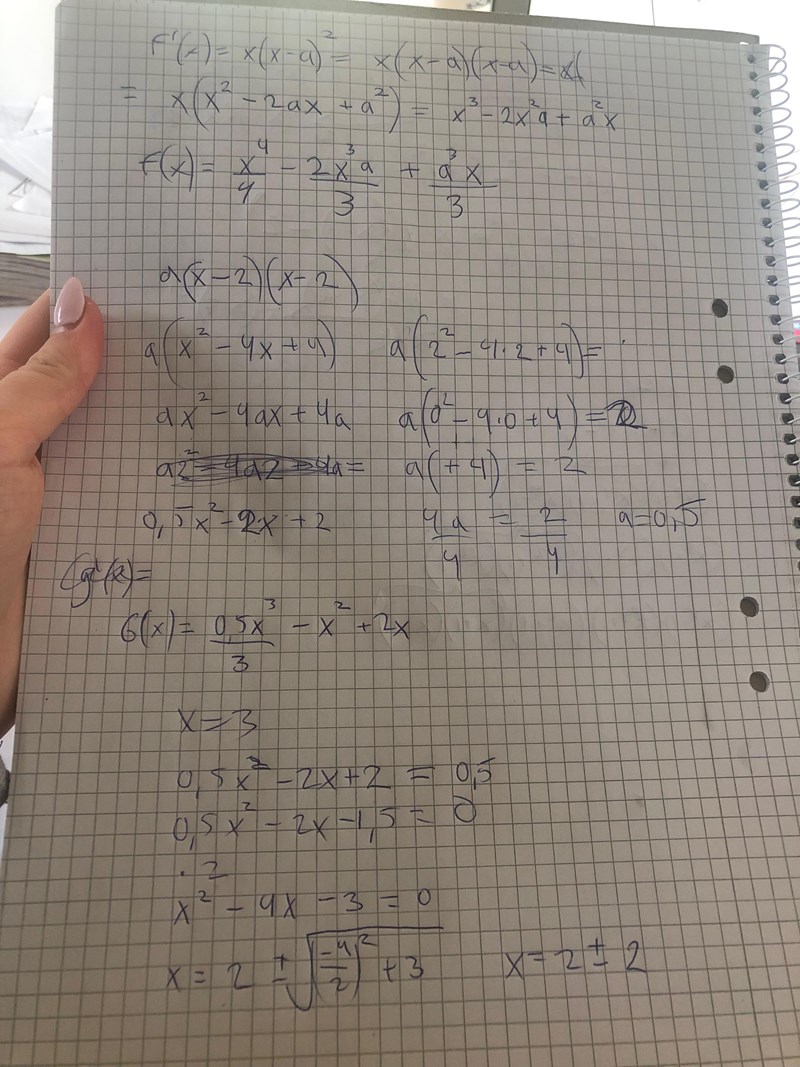 F'(x) = x(x-a)² = x(x-a)(x-a) = x(
= x(x² - 2ax + a²) = x³ - 2x²a + a²x
F(x) = x⁴/4 - 2x³a/3 + a³x/3
a(x-2)(x-2)
a(x² - 4x + 4) a(2² - 4·2 + 4) =
ax² - 4ax + 4a a(0² - 4·0 + 4) = 2
a2² - 4a2 + 4a = a(+4) = 2
0,5x² - 2x + 2 4a/4 = 2/4 a=0,5
G'(x) =
G(x) = 0,5x³/3 - x² + 2x
x = 3
0,5x² - 2x + 2 = 0,5
0,5x² - 2x - 1,5 = 0
· 2
x² - 4x - 3 = 0
x = 2 ± √((-4/2)² + 3) x = 2 ± 2